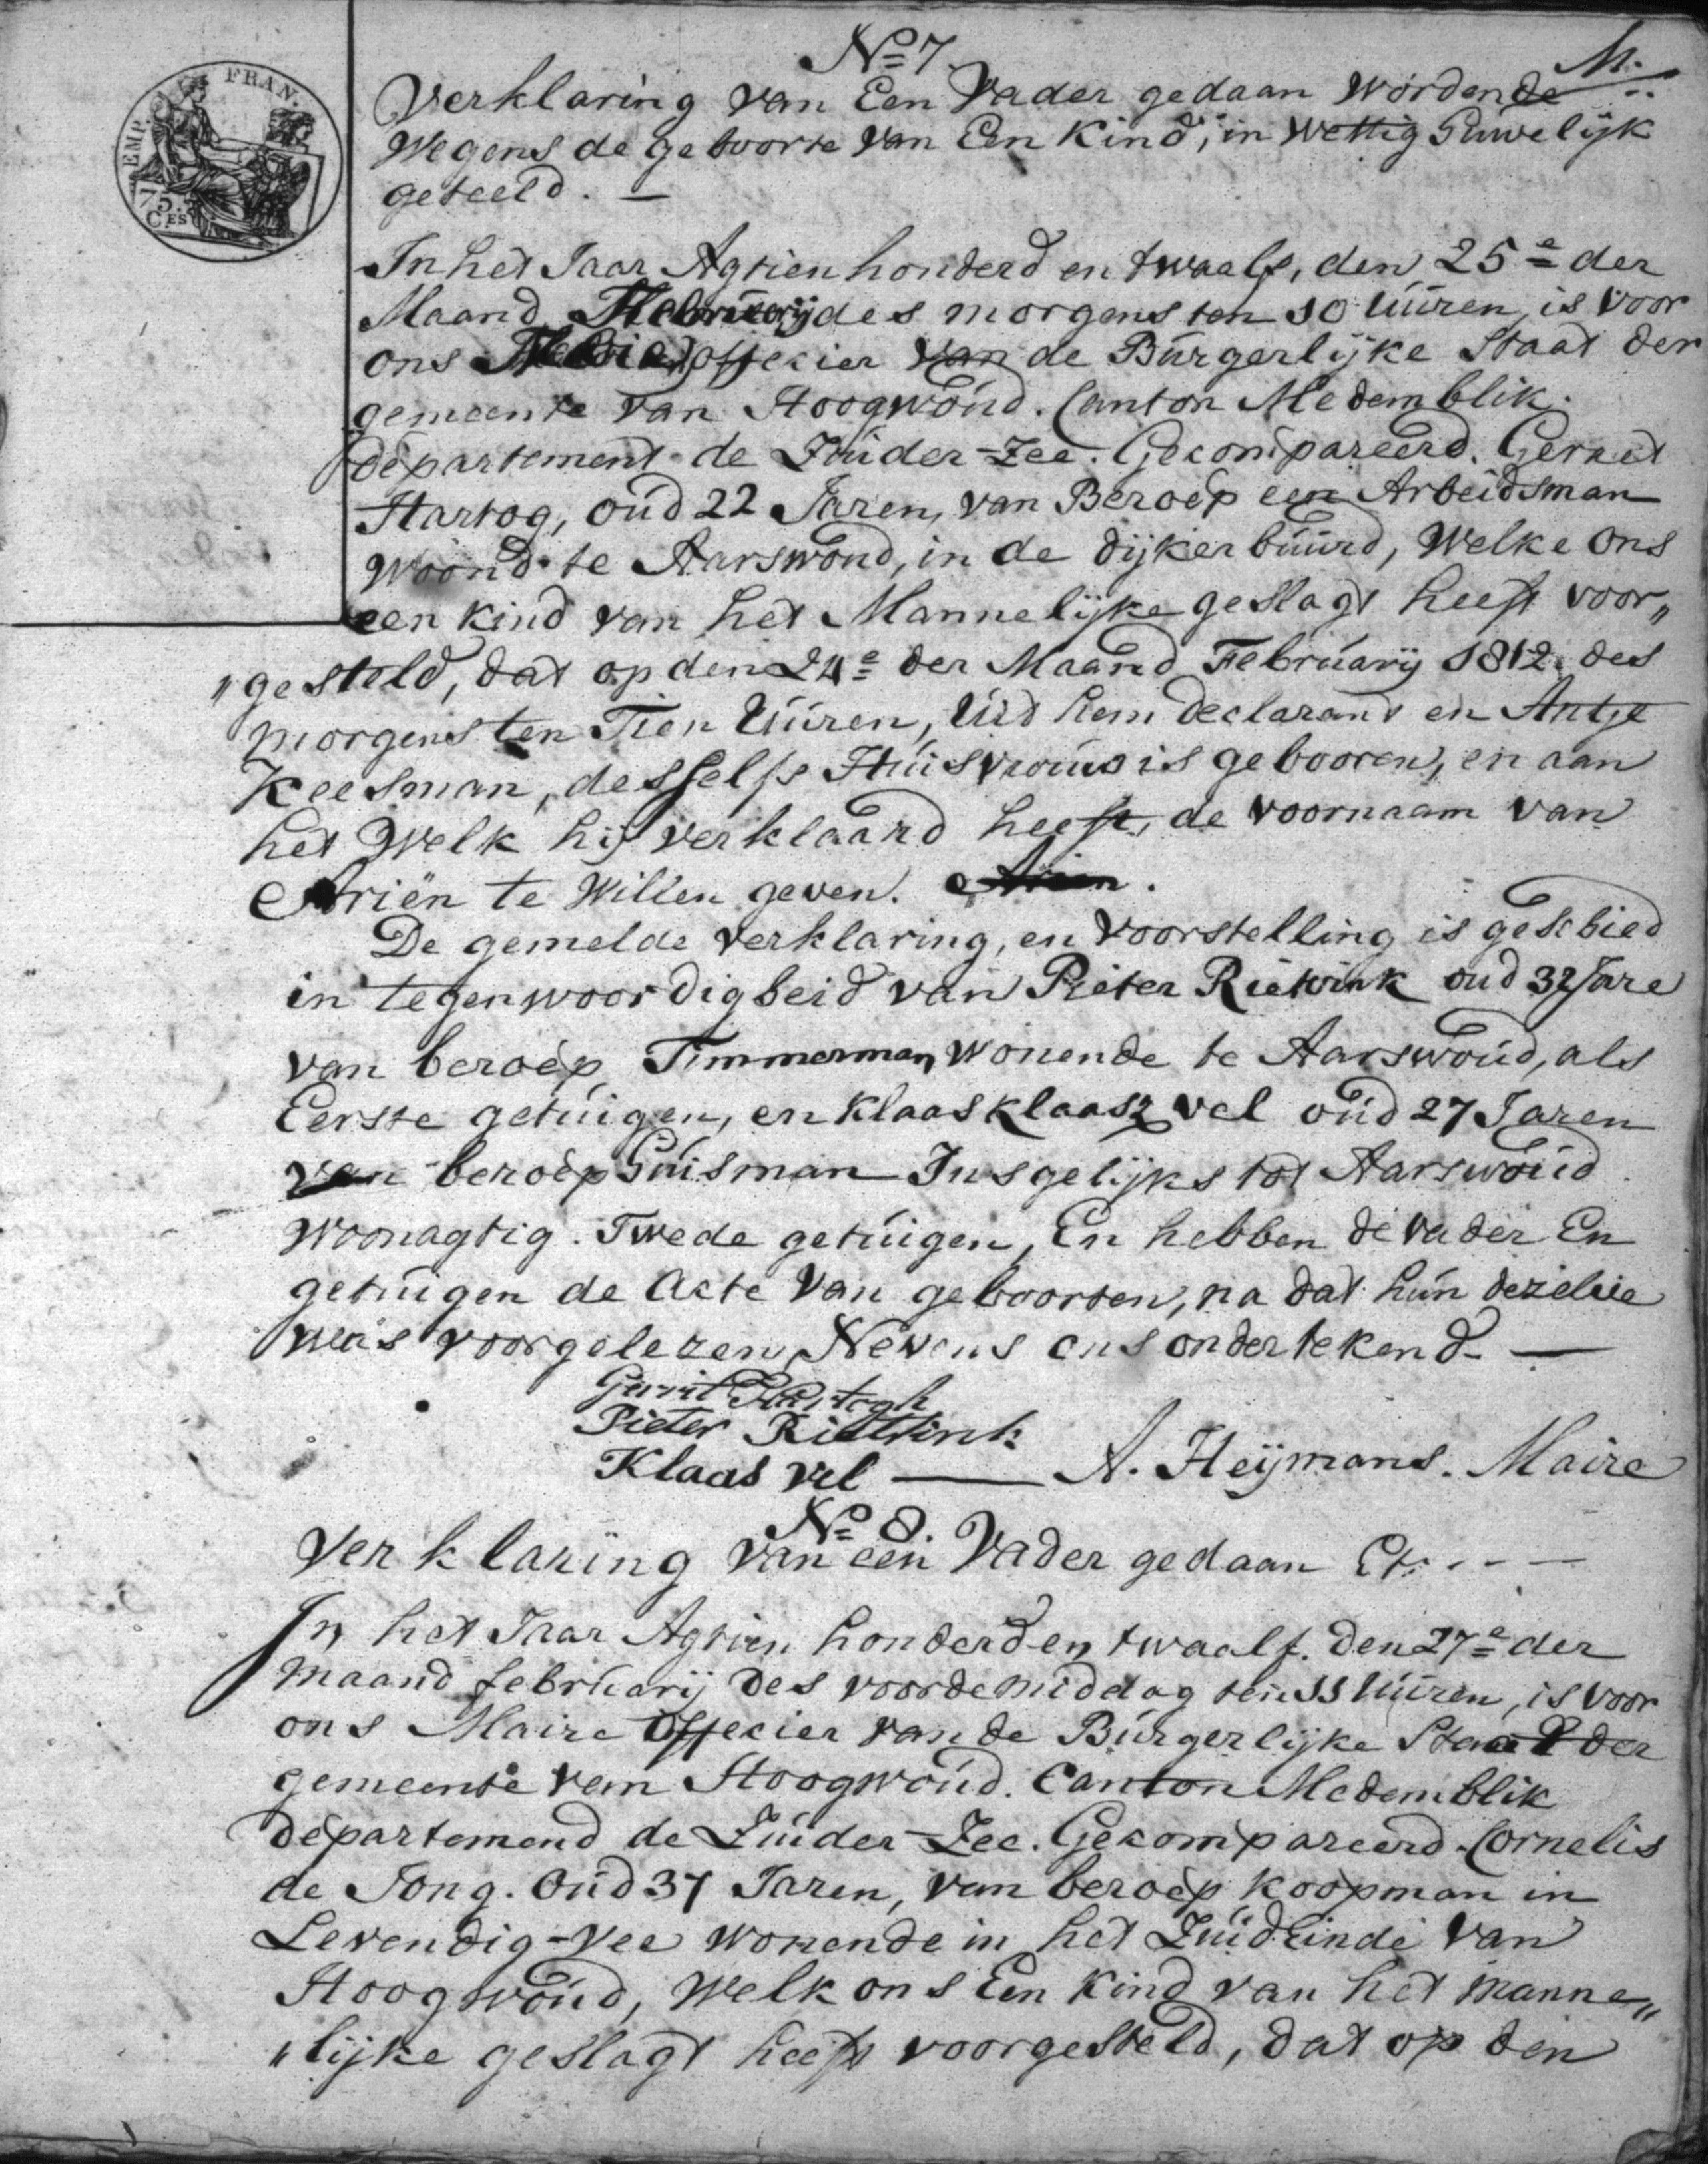 No 7.
M.
EMP. FRAN.
75.
CES
Verklaring van Een Vader gedaan wordende
Wegens de geboorte van Een Kind, in wettig Huwelijk
geteeld. —
In het Jaar Agtien honderd en twaalf, den 25e der
Maand Februarij des morgens ten 10 uuren, is voor
ons Maire offecier van de Burgerlijke Staat der
gemeente van Hoogwoud. Canton Medemblik.
departement de Zuider-Zee. Gecompareerd. Gerret
Hartog, oud 22 Jaren, van Beroep een Arbeidsman
Woond te Aarswoud, in de dijker buurd, Welke ons
een kind van het Mannelijke geslagt heeft voor„
„gesteld, dat op den 24e der Maand Februarij 1812. des
morgens ten Tien Uuren, Uid hem declarant en Antje
Keesman, desselfs Huisvrouw is gebooren, en aan
het Welk hij verklaard heeft, de voornaam van
Ariën te Willen geven. Arien.
De gemelde verklaring, en voorstelling is geschied
in tegenwoordigheid van Pieter Rietvink oud 32 Jare
van beroep Timmerman wonende te Aarswoud, als
Eerste getuigen, en Klaas Klaasz vel oud 27 Jaren
van beroep Huisman Insgelijks tot Aarswoud
Woonagtig. Twede getuigen, En hebben de vader En
getuigen de Acte van geboorten, na dat hun dezelve
was voorgelezen Nevens ons ondertekend. —
Gerrit Hartogh
Pieter Rietvink
Klaas Vel — A. Heijmans. Maire
No 8.
Verklaring van een Vader gedaan Etc. - - -
In het Jaar Agtien honderd en twaalf. Den 27e der
Maand februarij des voordemiddag ten 11 Uuren, is voor
ons Maire Offecier van de Burgerlijke Staat der
gemeente van Hoogwoud. Canton Medemblik
departemend de Zuider-Zee. Gekompareerd. Cornelis
de Jong. Oud 37 Jaren, van beroep koopman in
Levendig-Vee wonende in het Zuideinde van
Hoogwoud, Welk ons Een Kind van het manne„
„lijke geslagt heeft voorgesteld, dat op den